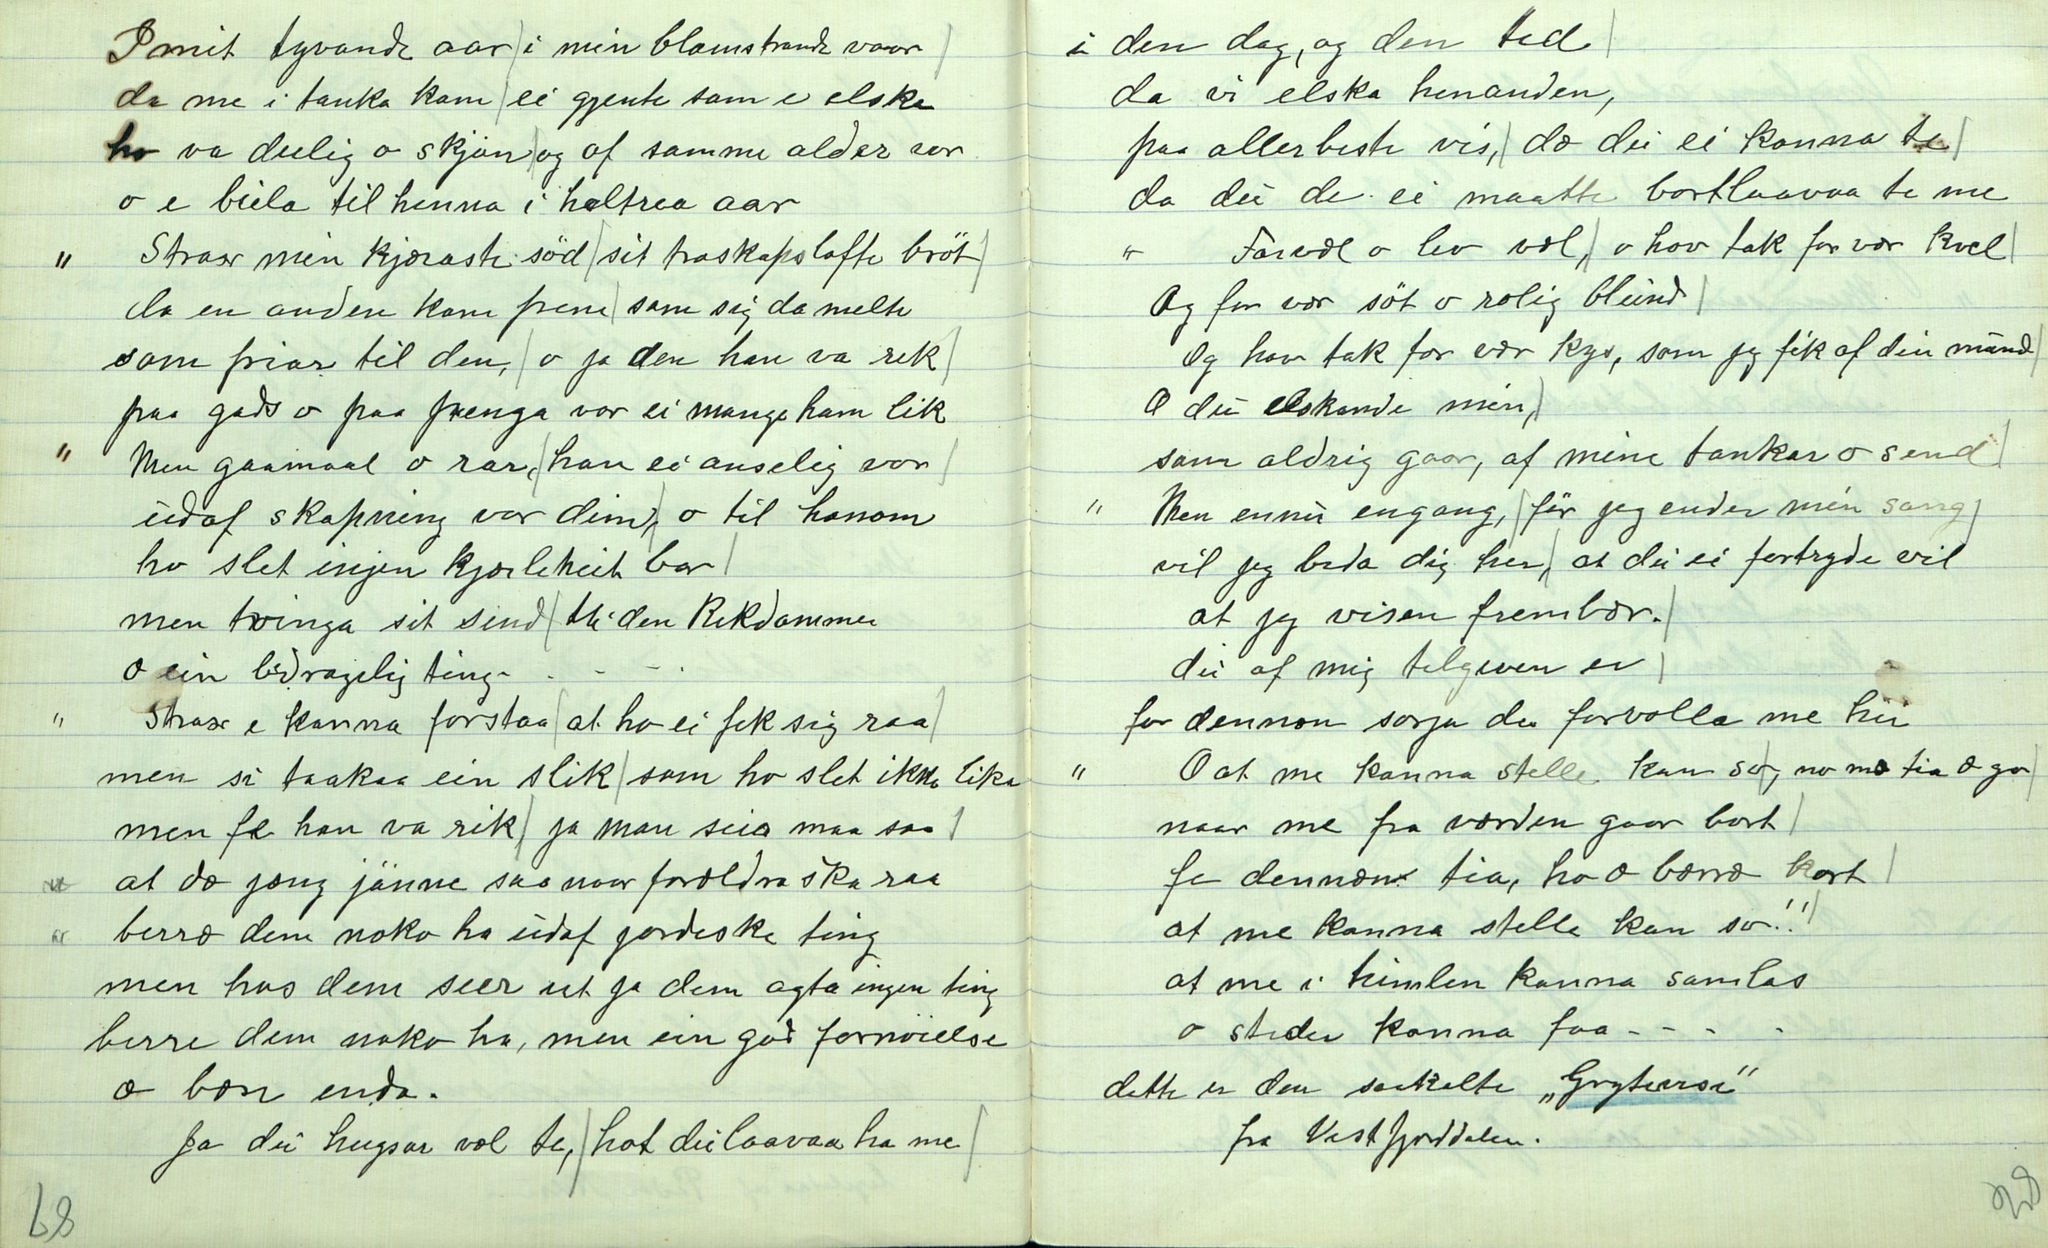 I mit tyvande aar / i min blomstrande vaar /
da me i tanka kom / ei gjente som e elska
ho va deilig o skjön / og af samme alder var
o e biela til henna i heltrea aar
" Strax min kjæraste söd / sit troskapslofte bröt /
da en anden kom frem / som sig da melte
som friar til den, / o ja den han va rik /
paa gods o paa penga var ei mange ham lik
" Men gaamaal o rar, / han ei anselig var /
udaf skapning var dim, / o til honom
ho slet injen kjærleheit bar /
men tvinga sit sind / thi den Rikdommen
æ ein bedragelig ting - - - -
" Strax e kanna forstaa / at ho ei fik sig raa /
men si taakaa ein slik / som ho slet ikke lika
men fe han va rik / ja man seie maa saa /
at dæ jæng jänne saa naar foreldra ska raa
berre dem noko ha udaf jordeske ting
men hos dem seer ut ja dem agta ingen ting
berre dem noko ha, men ein god fornöielse
æ bær enda.
Ja du hugsar væl te, / hot du laavaa ha me /
68
i den dag, og den tid /
da vi elska hinanden,
paa allerbeste vis, / dæ du ei kanna te /
da du de ei maatte bortlaavaa te me
" Farvæl o lev væl, / o hav tak for vær kvel /
Og for vær söt o rolig blund /
Og hav tak for vær kys, som jeg fik af din mund /
O du elskande min, /
som aldrig gaar, af mine tankar o send /
" Men ennu engang, / för jeg ender min sang /
vil jeg beda dig her, / at du ei fortryde vil
at jeg visen frembær. /
du af mig telgiven er /
for dennan sorja du forvolla me hu
" O at me kanna stelle kan so, no mæ tia æ go /
naar me fra værden gaar bort /
fe dennan tia, ho æ bærre kort /
at me kanna stelle kan so!! /
at me i himlen kanna samlas
o steder kanna faa - - - -
dette er den saakalte „Grytevisa"
fra Vestfjorddalen.